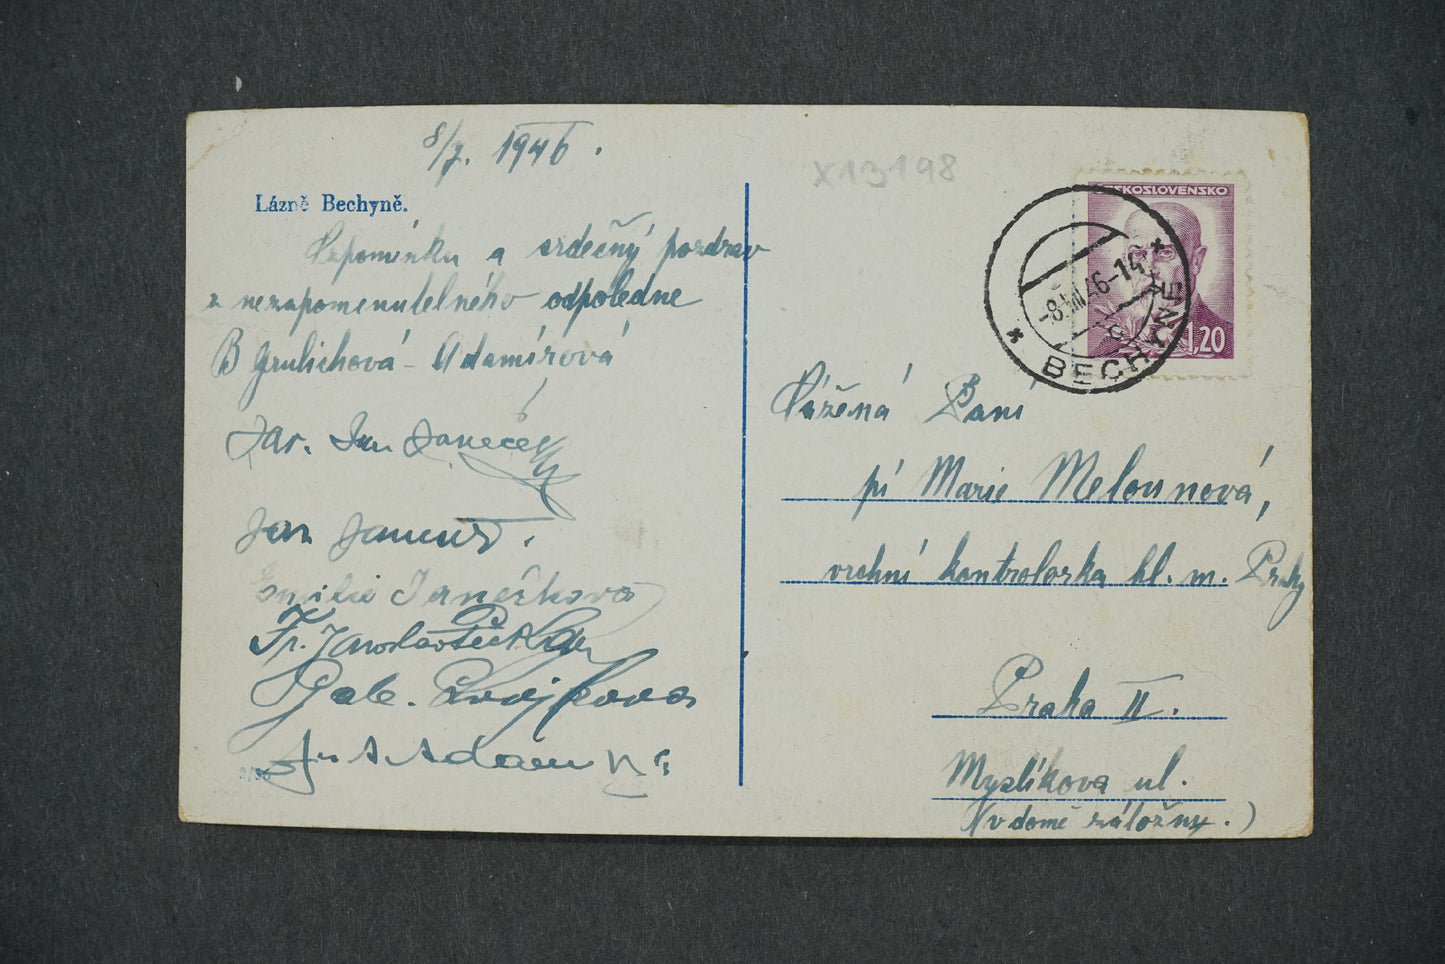 8/7. 1946.
Lázně Bechyně.
Vzpomínku a srdečný pozdrav
z nezapomenutelného odpoledne
B Grulichová - Adamírová
Jar. Jan Janeček
Jan
Emilie Janečkova
Fr. Jaroslav
3/36
X13198
ČESKOSLOVENSKO
1,20
-8.VII.46-14
* BECHYNĚ *
Vážená Paní
pí Marie Melounová,
vrchní kontrolorka hl. m. Prahy
Praha II.
Myslíkova ul.
(v domě záložny.)